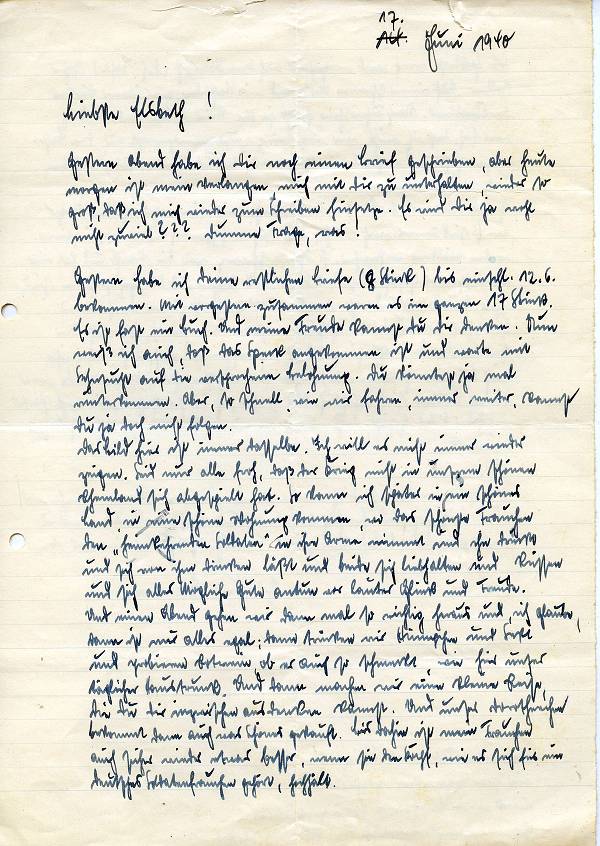 17.
Juni 1940
Liebste Elsbeth !
Gestern Abend habe ich Dir noch einen Brief geschrieben, aber heute
morgen ist mein Verlangen, mich mit Dir zu unterhalten, wieder so
groß, daß ich mich wieder zum Schreiben hinsetze. Es wird Dir ja wohl
nicht zuviel ??? Dumme Frage, was !
Gestern habe ich Deine restlichen Briefe (9 Stück) bis einschl. 12.6.
bekommen. Mit vorgestern zusammen waren es im ganzen 17 Stück.
Es ist fast ein Buch. Und meine Freude kannst Du Dir denken. Nun
weiß ich auch, daß das Speck angekommen ist und warte mit
Sehnsucht auf die versprochene Belohnung. Du könntest ja mal
rüberkommen. Aber, so schnell, wie wir fahren, immer weiter, kannst
Du ja doch nicht folgen.
Das Bild hier ist immer dasselbe. Ich will es nicht immer wieder
zeigen. Seid nur alle froh, daß der Krieg nicht in unserm schönen
Rheinland sich abgespielt hat. So kann ich später in ein schönes
Land, in eine schöne Wohnung kommen, wo das schönste Frauchen
den „heimkehrenden Soldaten“ in ihre Arme nimmt und ihn drückt
und sich von ihm drücken läßt und beide sich liebhalten und küssen
und sich alles Mögliche Gute antun vor lauter Glück und Freude.
Und einen Abend gehen wir dann mal so richtig heraus und ich glaube,
dann ist mir alles egal; dann trinken wir und Sekt
und probieren Rotwein ob er auch so schmeckt, wie hier unser
täglicher Haustrunk. Und dann machen wir eine kleine Reise,
die Du Dir inzwischen ausdenken kannst. Und unser
bekommt dann auch was Schönes gekauft. Bis dahin ist mein Frauchen
auch sicher wieder etwas besser, wenn sie den Kopf, wie es sich für ein
deutsches Soldatenfrauchen gehört, hochhält.